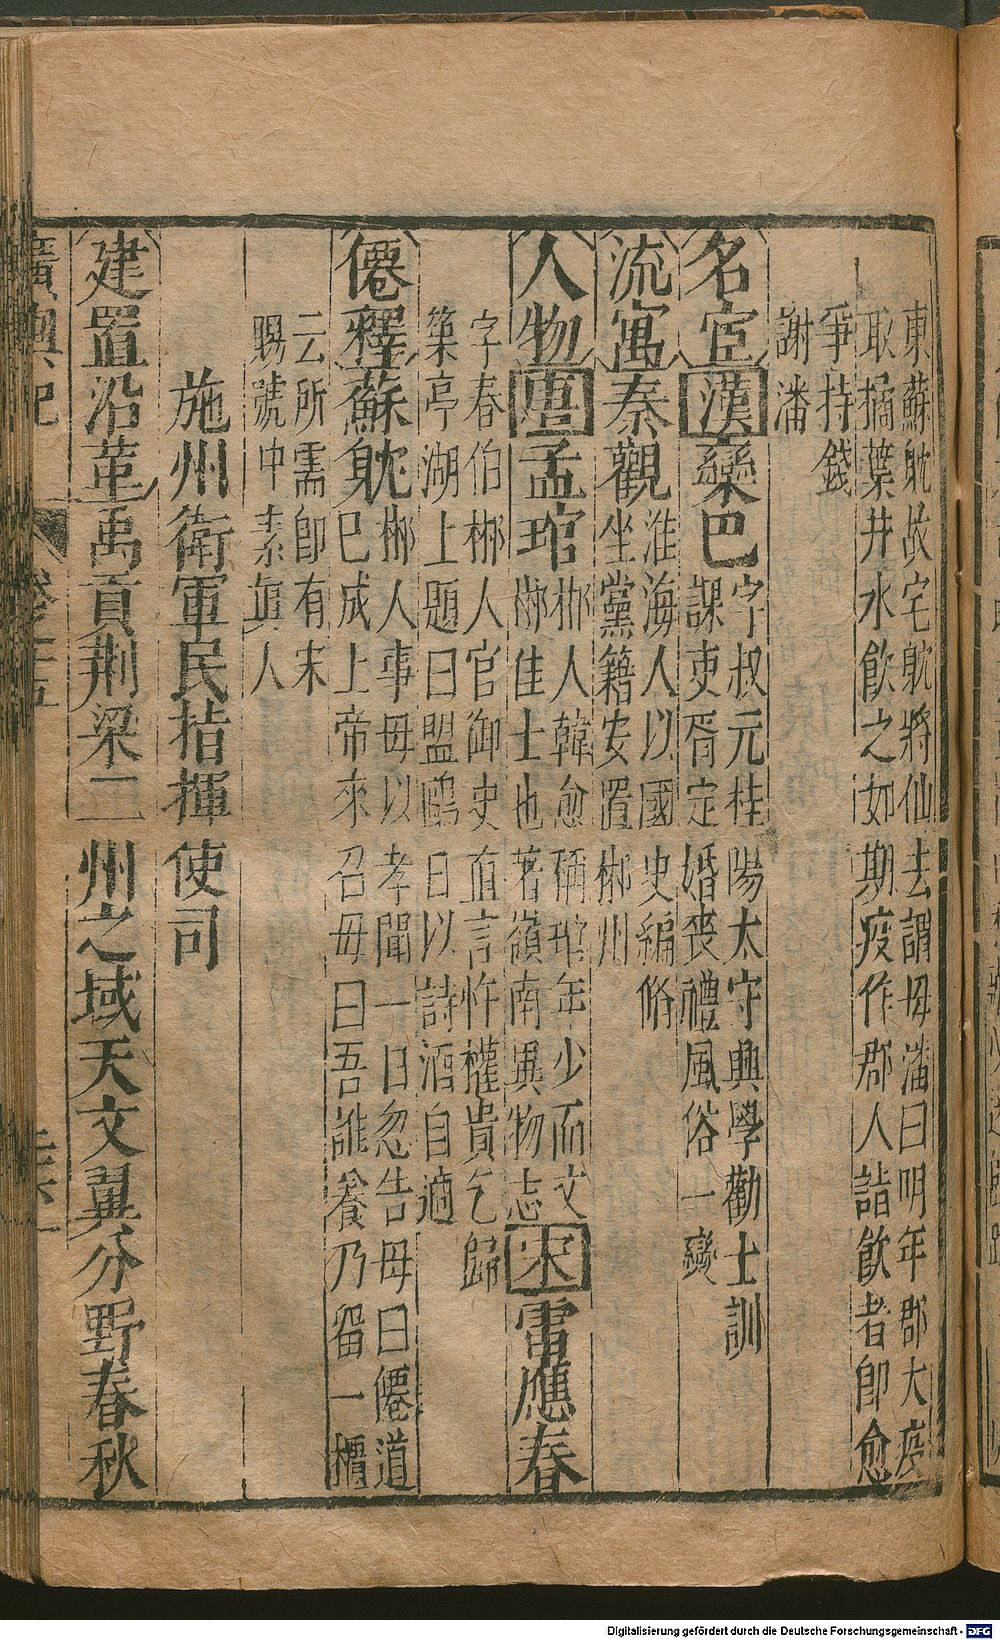 東蘇躭故宅躭將仙去謂母潘曰明年郡大疫
取橘葉井水飮之如期疫作郡人詣飮者即愈
爭持錢
謝潘
名宦漢欒巴
字叔元桂陽太守興學勸士訓
課吏胥定婚喪禮風俗一變
流寓秦觀
淮海人以國史編脩
坐黨籍安置郴州
人物唐孟琯
郴人韓愈稱琯年少而文
郴佳士也著嶺南異物志
宋雷應春
字春伯郴人官御史直言忤權貴乞歸
築亭湖上題曰盟鷗日以詩酒自適
僊釋蘇躭
郴人事母以孝聞一日忽告母曰僊道
已成上帝來召母曰吾誰養乃留一櫃
云所需卽有宋
賜號冲素眞人
施州衛軍民指揮使司
建置沿革禹貢荆梁二州之域天文翼分野春秋
廣輿記
Digitalisierung gefördert durch die Deutsche Forschungsgemeinschaft - DFG